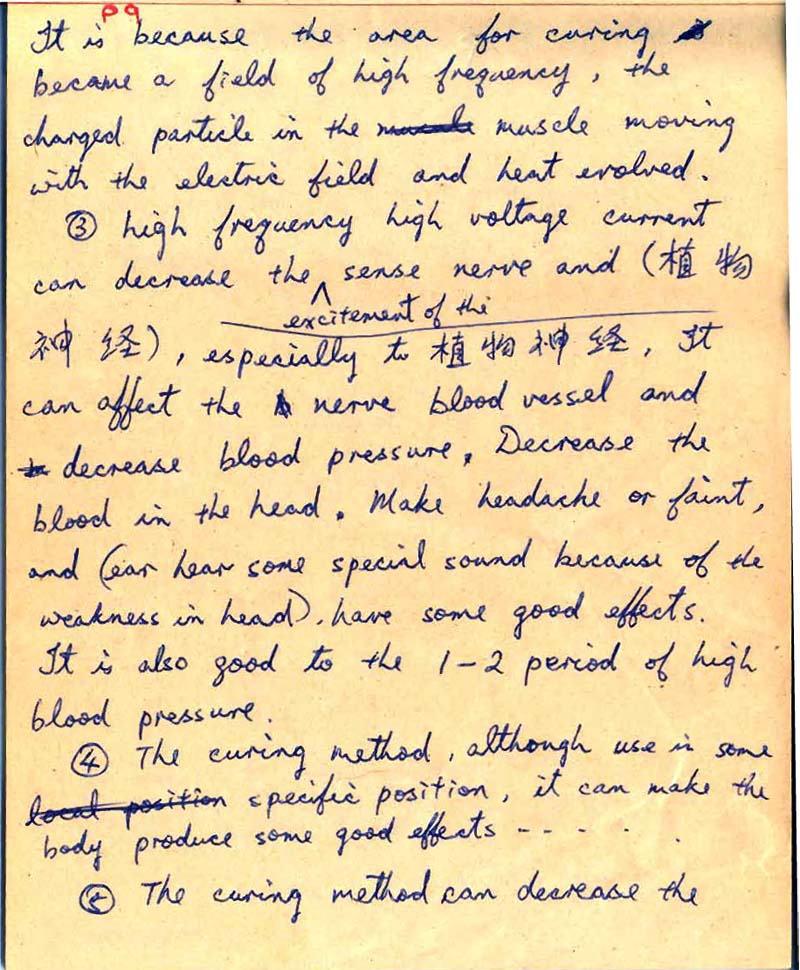 P9
It is because the area for curing
became a field of high frequency, the
charged particle in the muscle muscle moving
with the electric field and heat evolved.
③ high frequency high voltage current
can decrease the ^ sense nerve and (植物
excitement of the
神经), especially to 植物神经, It
can affect the nerve blood vessel and
decrease blood pressure. Decrease the
blood in the head. Make headache or faint,
and (ear hear some special sound because of the
weakness in head). have some good effects.
It is also good to the 1-2 period of high
blood pressure.
④ The curing method, although use in some
local position specific position, it can make the
body produce some good effects -- - . . .
The curing method can decrease the